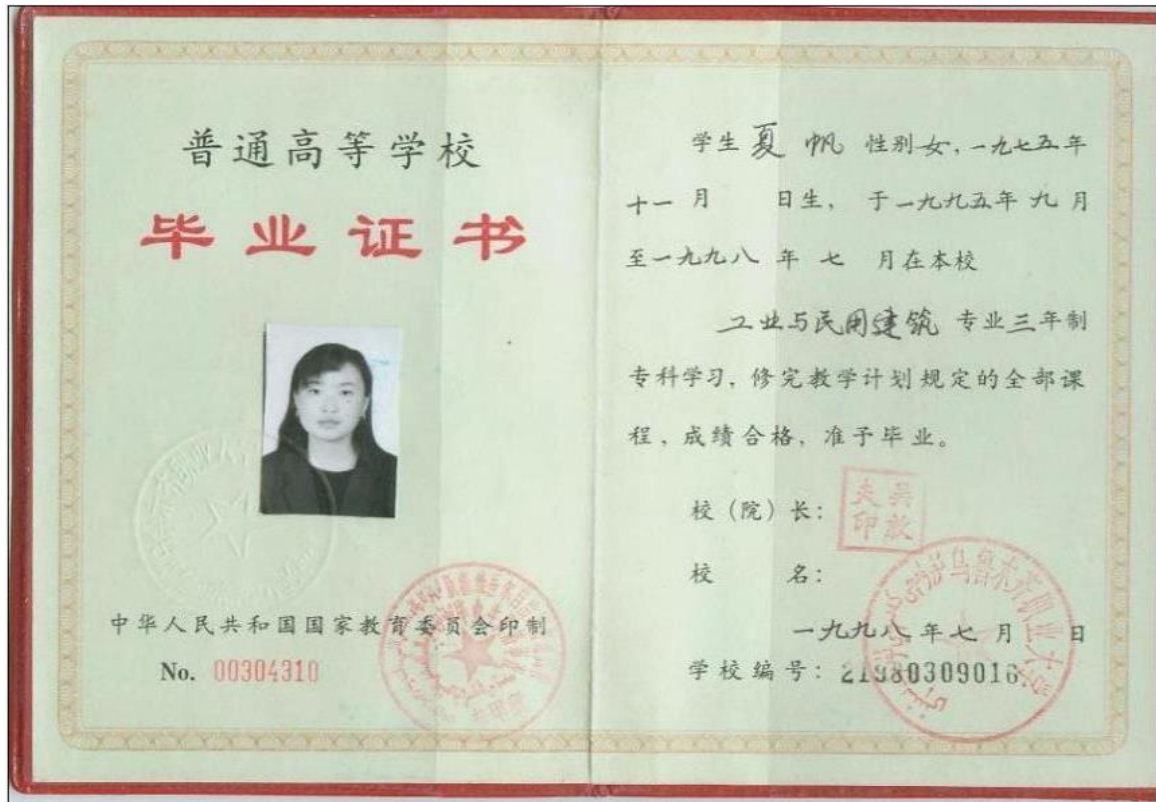 普通高等学校
毕业证书
中华人民共和国国家教育委员会印制
No. 00304310
学生 夏帆 性别 女，一九七五年
十一月 日生，于一九九五年九月
至一九九八年七月在本校
工业与民用建筑 专业 三年制
专科学习，修完教学计划规定的全部课
程，成绩合格，准予毕业。
校（院）长：
校 名：
乌鲁木齐职业大学
一九九八年七月 日
学校编号：21980309016